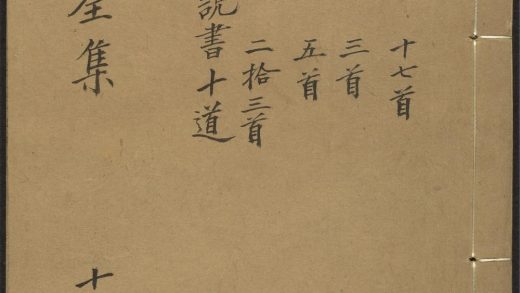 十七首
三首
五首
二拾三首
說書十道
全集 十